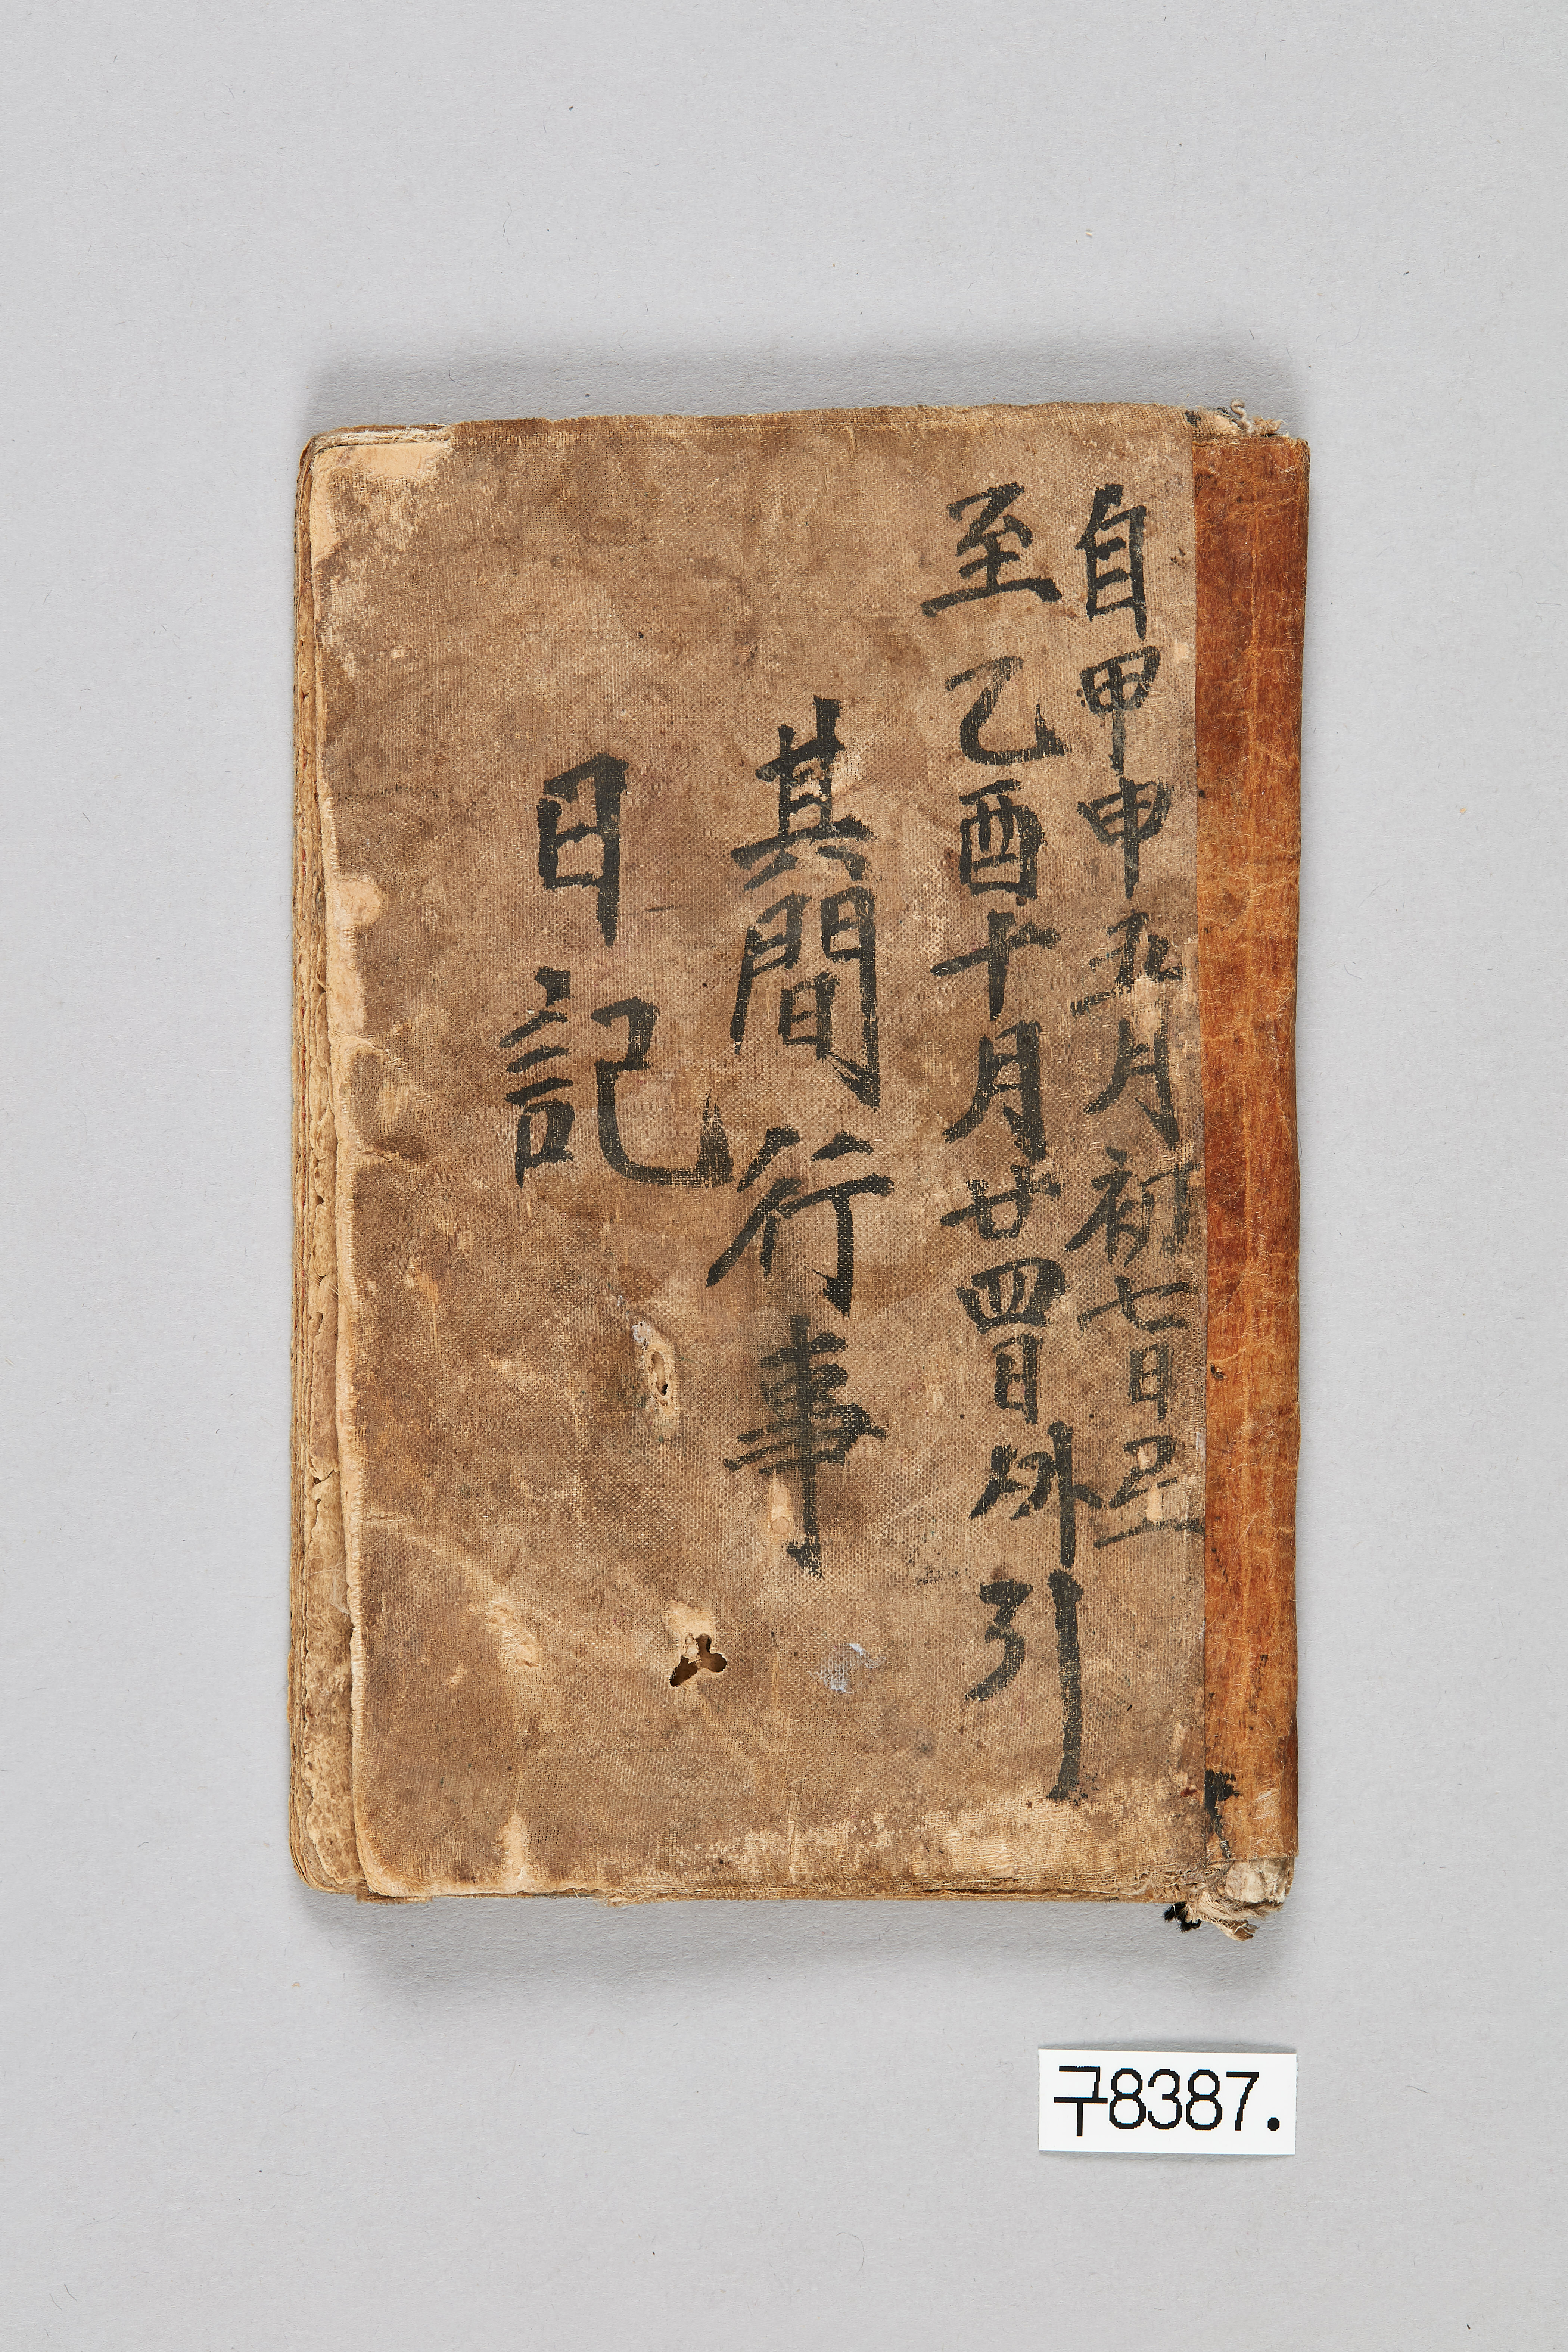 自甲申五月初七日
至乙酉十月廿四日外引
其間行事
日記
구8387.